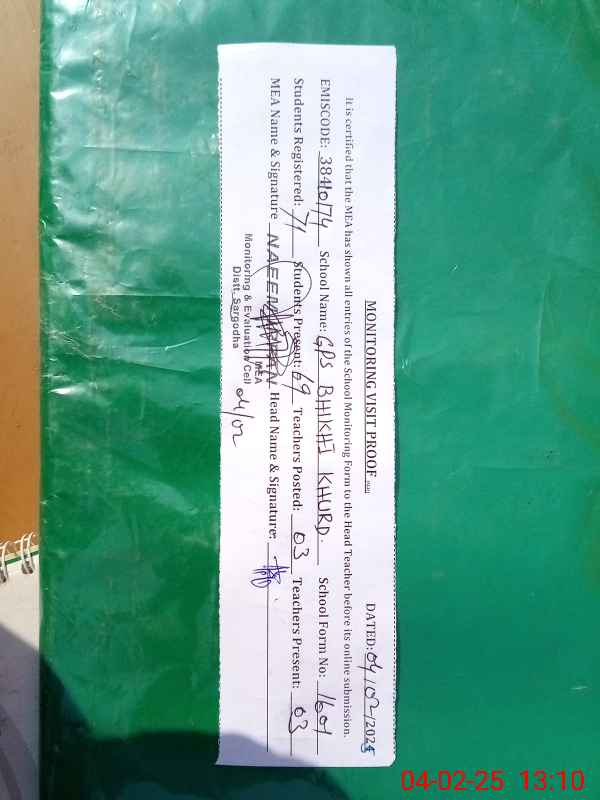 MONITORING VISIT PROOF
DATED: 04/02/2025
It is certified that the MEA has shown all entries of the School Monitoring Form to the Head Teacher before its online submission.
EMISCODE: 38410174 School Name: GPS BHIKHI KHURD. School Form No: 1601
Students Registered: 71 Students Present: 69 Teachers Posted: 03 Teachers Present: 03
MEA Name & Signature NAEEM Head Name & Signature:
MEA
Monitoring & Evaluation Cell
Distt. Sargodha
04/02
04-02-25 13:10